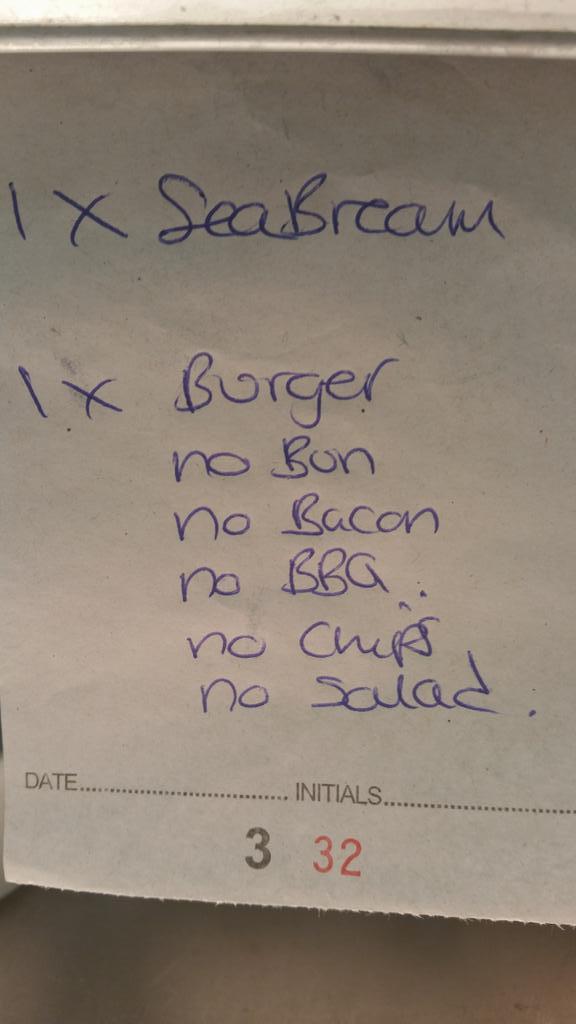 1 X SeaBream
1 X Burger
no Bun
no Bacon
no BBQ
no Chips
no Salad.
DATE.............................. INITIALS..............................
3 32